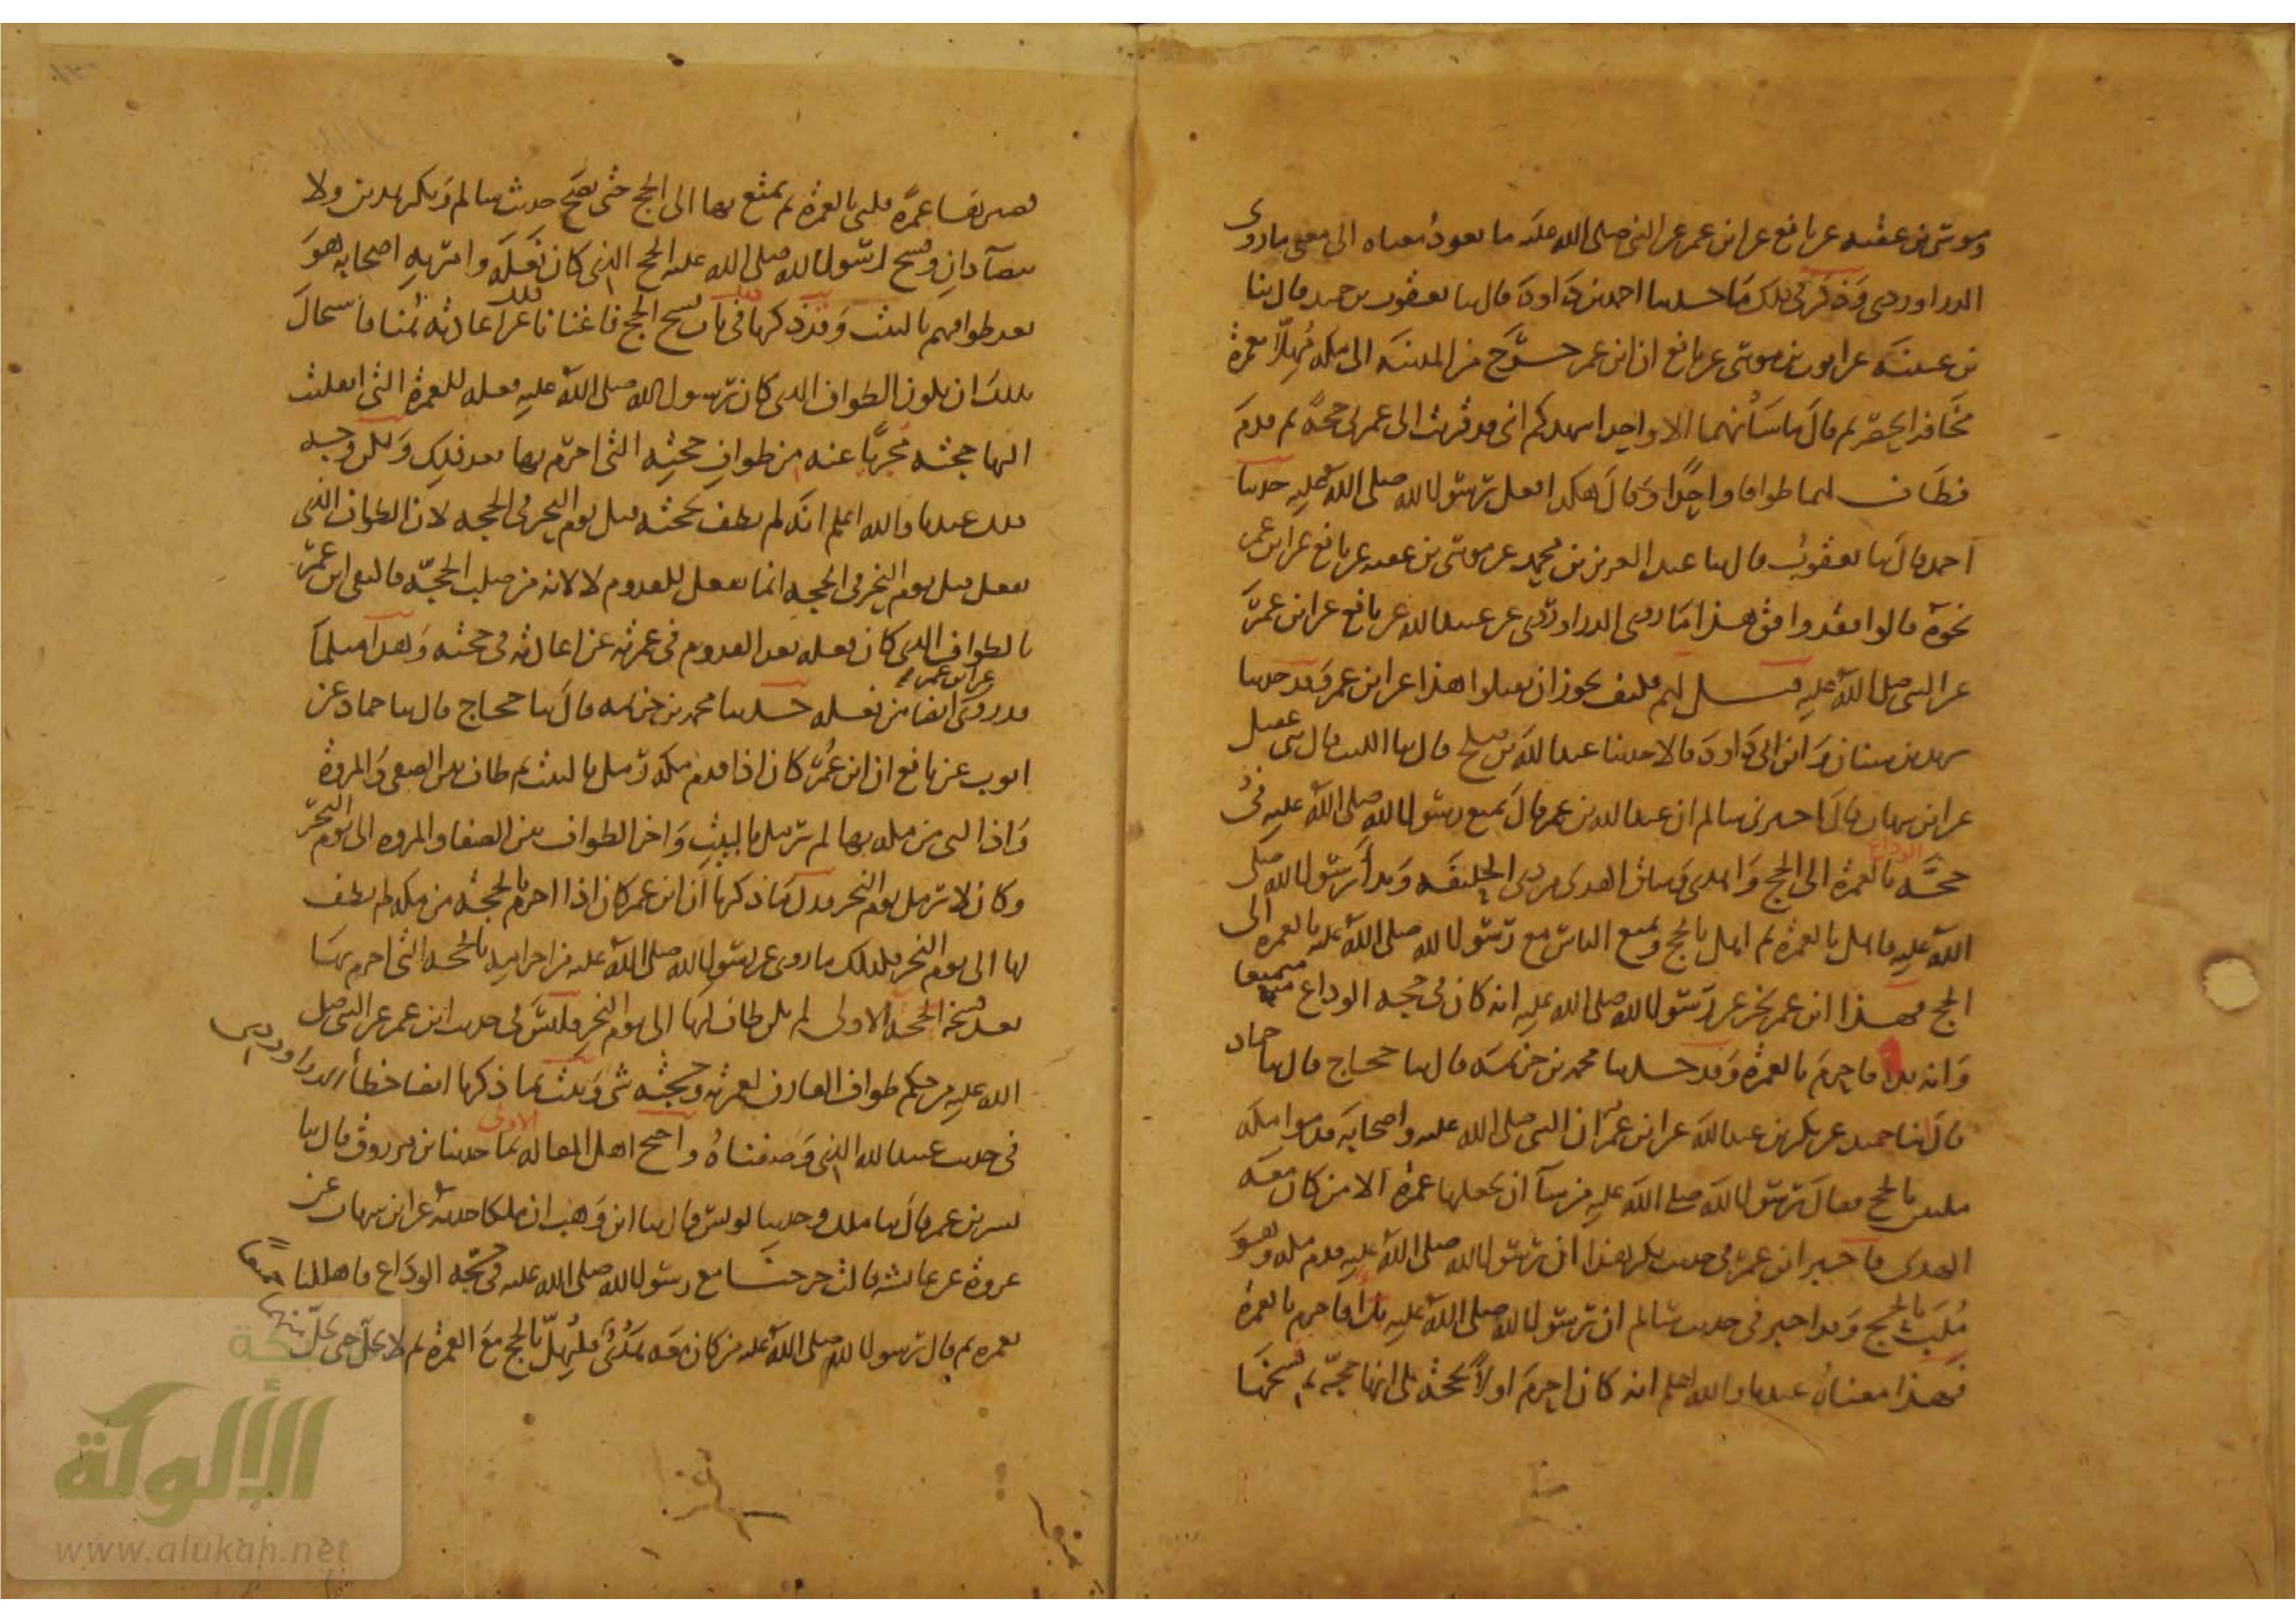 وموسى بن عقبه عن نافع عن ابن عمر عن النبى صلى الله عليه ما يعود معناه الى معنى ما روى
الدراوردى وذكر فى ذلك ما حدثنا احمد بن داود قال ثنا يعقوب بن حميد قال ثنا
بن عيينه عن ايوب بن موسى عن نافع ان ابن عمر خرج من المدينه الى مكه مهلا بعمرة
مخافه الحصر ثم قال ما شأنهما الا واحد اشهدكم انى قد قرنت الى عمرتى حجة ثم قدم
فطاف لهما طوافا واحدا وقال هكذا فعل رسول الله صلى الله عليه حدثنا
احمد قال ثنا يعقوب قال ثنا عبد العزيز بن محمد عن موسى بن عقبه عن نافع عن ابن عمر
نحوه قالوا فقد وافق هذا ما روى الدراوردى عن عبيد الله عن نافع عن ابن عمر
عن النبى صلى الله عليه قيل لهم فكيف يجوز ان تقبلوا هذا عن ابن عمر وقد حدثنا
يزيد بن سنان وابن ابى داود قالا حدثنا عبد الله بن صلح قال ثنا الليث قال ثنى عقيل
عن ابن شهاب قال اخبرنى سالم ان عبد الله بن عمر قال تمتع رسول الله صلى الله عليه فى
حجة الوداع بالعمرة الى الحج واهدى وساق الهدى من ذى الحليفه وبدأ رسول الله صلى
الله عليه فاهل بالعمرة ثم اهل بالحج وتمتع الناس مع رسول الله صلى الله عليه بالعمرة الى
الحج فهذا ابن عمر يخبر عن رسول الله صلى الله عليه انه كان فى حجه الوداع متمتعا
وانه بدا فاحرم بالعمرة وقد حدثنا محمد بن خزيمه قال ثنا حجاج قال ثنا حماد
قال ثنا حميد عن بكر بن عبد الله عن ابن عمر ان النبى صلى الله عليه واصحابه قدموا مكه
ملبين بالحج فقال رسول الله صلى الله عليه من شآ ان يجعلها عمرة الا من كان معه
الهدى فاخبر ابن عمر فى حديث بكر هذا ان رسول الله صلى الله عليه قدم مكه وهو
ملب بالحج وقد اخبر فى حديث سالم ان رسول الله صلى الله عليه بدأ فاحرم بالعمرة
فهذا معناه عندنا والله اعلم انه كان احرم اولا بحجة على انها حجة ثم فسخها
فصيرها عمرة فلبى بالعمرة ثم تمتع بها الى الحج حتى يصح حديث سالم وبكر هذين ولا
يتضآدان وفسخ رسول الله صلى الله عليه الحج الذى كان فعله وامر به اصحابه هو
بعد طوافهم بالبيت وقد ذكرنا ذلك فى باب فسخ الحج فاغنانا ذلك عن اعادته هنا فاستحال
بذلك ان يكون الطواف الذى كان رسول الله صلى الله عليه فعله للعمرة التى انقلبت
اليها حجته مجزيا عنه من طواف حجته التى احرم بها بعد ذلك ولكن وجه
ذلك عندنا والله اعلم انه لم يطف لحجته قبل يوم النحر فى الحجه لان الطواف الذى
يفعل قبل يوم النحر فى الحجه انما يفعل للقدوم لا لانه من صلب الحجة فاكتفى ابن عمر
بالطواف الذى كان فعله بعد القدوم فى عمرته عن اعادته فى حجته وهذا مثل ما
قد روى عن ابن عمر ايضا من فعله حدثنا محمد بن خزيمه قال ثنا حجاج قال ثنا حماد عن
ايوب عن نافع ان ابن عمر كان اذا قدم مكه رمل بالبيت ثم طاف بين الصفى والمروة
واذا لبى من مكه بها لم يرمل بالبيت واخر الطواف بين الصفا والمروه الى يوم النحر
وكان لا يرمل يوم النحر فدل ما ذكرنا ان ابن عمر كان اذا احرم بالحجة من مكه لم يطف
لها الى يوم النحر فكذلك ما روى عن رسول الله صلى الله عليه من احرامه بالحجه التى احرم بها
بعد فسخه الحجه الاولى لم يكن طاف لها الى يوم النحر فليس فى حديث ابن عمر عن النبى صلى
الله عليه من حكم طواف القارن لعمرته وحجته شى وثبت بما ذكرنا ايضا خطأ الدراوردى
فى حديث عبيد الله الذى وصفناه واحتج اهل المقاله الاولى بما حدثنا بن مرزوق قال ثنا
بشر بن عمر قال ثنا ملك وحدثنا يونس قال ثنا ابن وهب ان ملكا حدثه عن ابن شهاب عن
عروة عن عائشه قالت خرجنا مع رسول الله صلى الله عليه فى حجة الوداع فاهللنا
بعمره ثم قال رسول الله صلى الله عليه من كان معه هدى فليهل بالحج مع العمرة ثم لا يحل حتى يحل منهما
الألوكة
www.alukah.net